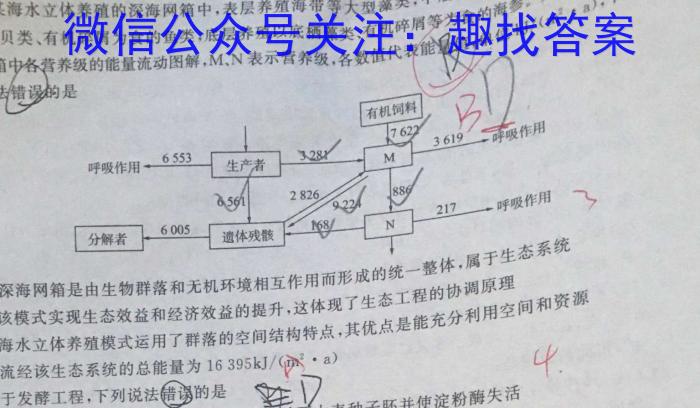 某海水立体养殖的深海网箱中,表层养殖海带等大型藻类,
贝类、有机 鱼类,底层养殖以底栖藻类、有机碎屑等为食的海参。
微信公众号关注:趣找答案
箱中各营养级的能量流动图解,M、N表示营养级,各数值代表能量
法错误的是
有机饲料
7 622
呼吸作用 6 553 生产者 3 281 M 3 619 呼吸作用
6 561 2 826 9 224 886
分解者 6 005 遗体残骸 168 N 217 呼吸作用
深海网箱是由生物群落和无机环境相互作用而形成的统一整体,属于生态系统
该模式实现生态效益和经济效益的提升,这体现了生态工程的协调原理
海水立体养殖模式运用了群落的空间结构特点,其优点是能充分利用空间和资源
流经该生态系统的总能量为 16 395kJ/(m²·a)
于发酵工程,下列说法错误的是
种子胚并使淀粉酶失活
B
D
3
4.
D